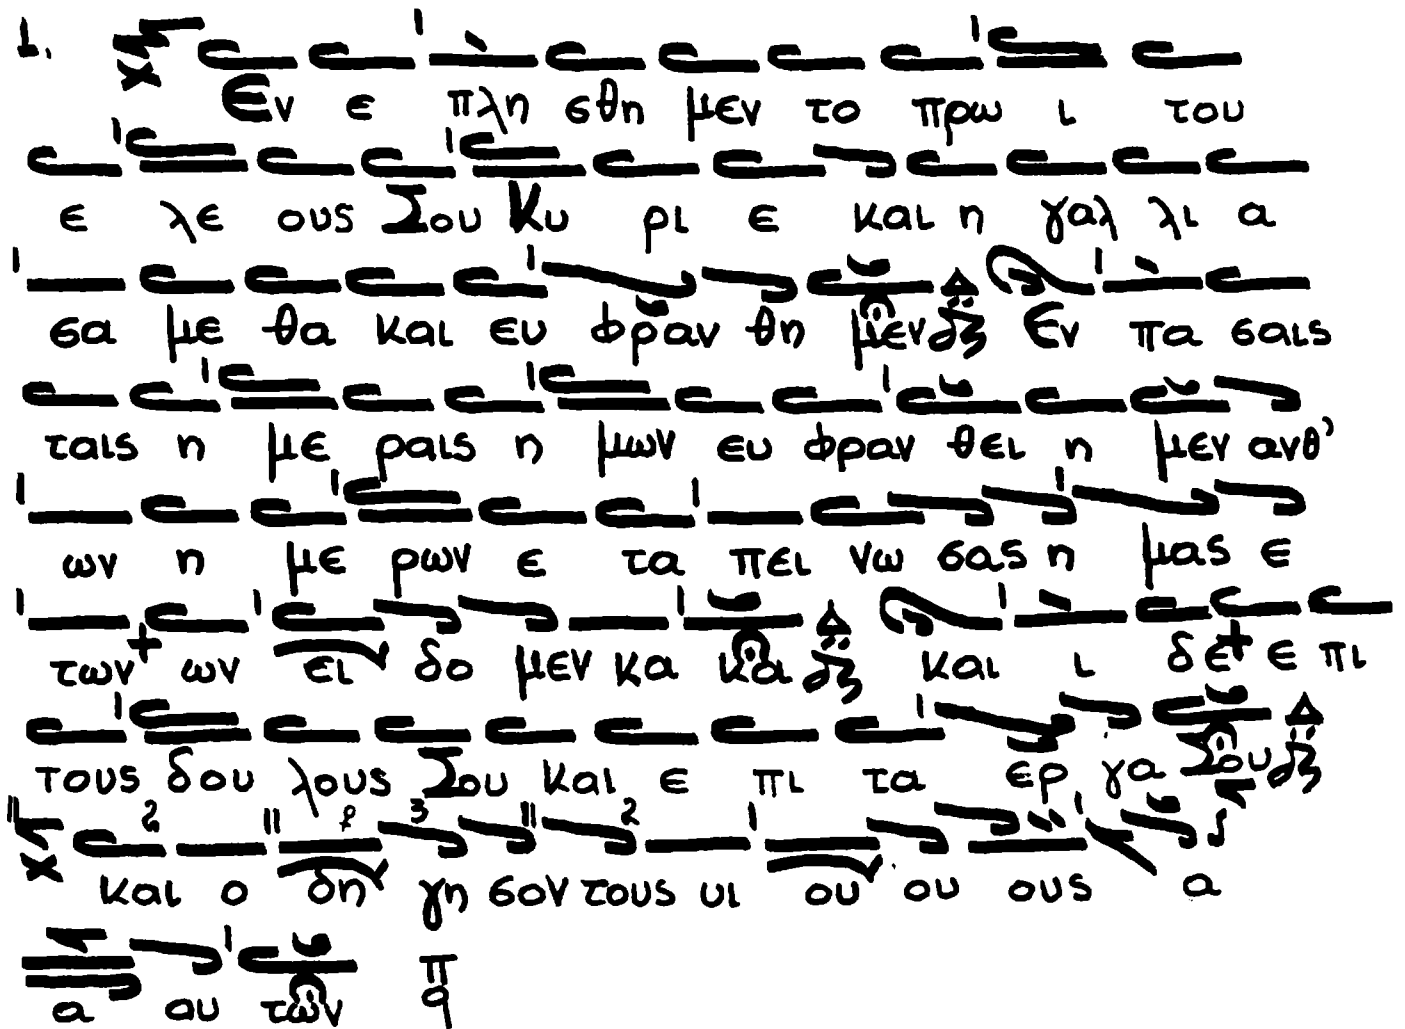 1. Εν ε πλη σθη μεν το πρω ι του
ε λε ους Σου Κυ ρι ε και η γαλ λι α
σα με θα και ευ φραν θη μεν Εν πα σαις
ταις η με ραις η μων ευ φραν θει η μεν ανθ'
ων η με ρων ε τα πει νω σας η μας ε
των ων ει δο μεν κα κα και ι δε ε πι
τους δου λους Σου και ε πι τα ερ γα Σου
και ο δη γη σον τους υι ου ου ους α
α αυ των π